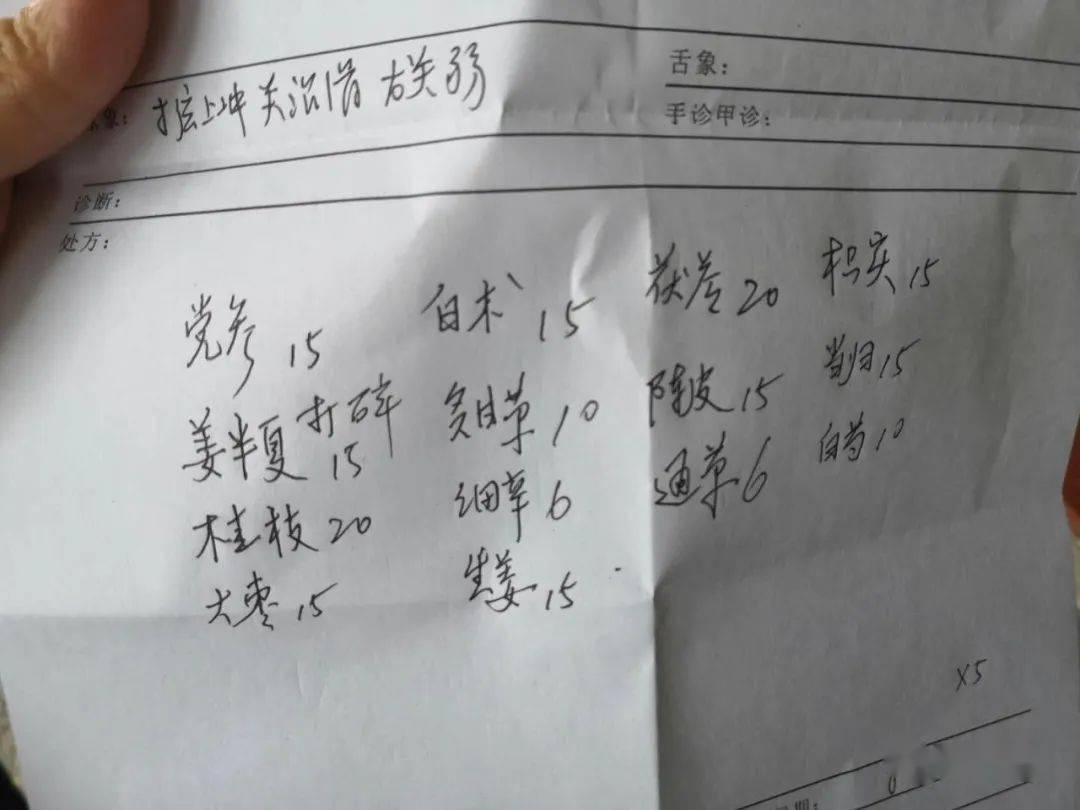 舌象：
象： 上冲 关沿滑 右关弱
手诊甲诊：
诊断：
处方：
党参 15 白术 15 茯苓 20 枳实 15
姜半夏 打碎 15 炙甘草 10 陈皮 15 当归 15
桂枝 20 细辛 6 通草 6 白芍 10
大枣 15 生姜 15
x5